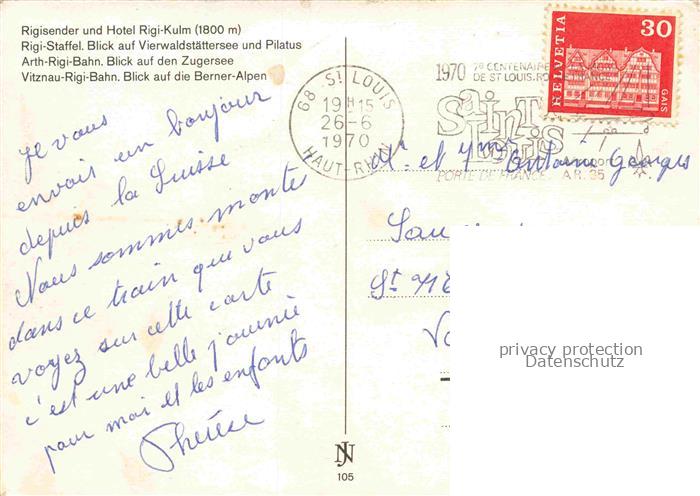 Rigisender und Hotel Rigi-Kulm (1800 m)
Rigi-Staffel. Blick auf Vierwaldstättersee und Pilatus
Arth-Rigi-Bahn. Blick auf den Zugersee
Vitznau-Rigi-Bahn. Blick auf die Berner-Alpen
Je vous
envoir un bonjour
depuis la Suisse
Nous sommes montes
dans ce train que vous
voyez sur cette carte
c'est une belle journée
pour moi et les enfants
Thérèse
68 St LOUIS
19H15
26-6
1970
HAUT-RHIN
1970 7e CENTENAIRE
DE ST LOUIS.ROI FRANCE
Saint
Louis
PORTE DE FRANCE A.R. 35
HELVETIA
30
GAIS
Mr. et Mme Antoine Georges
St
privacy protection
Datenschutz
JN
105